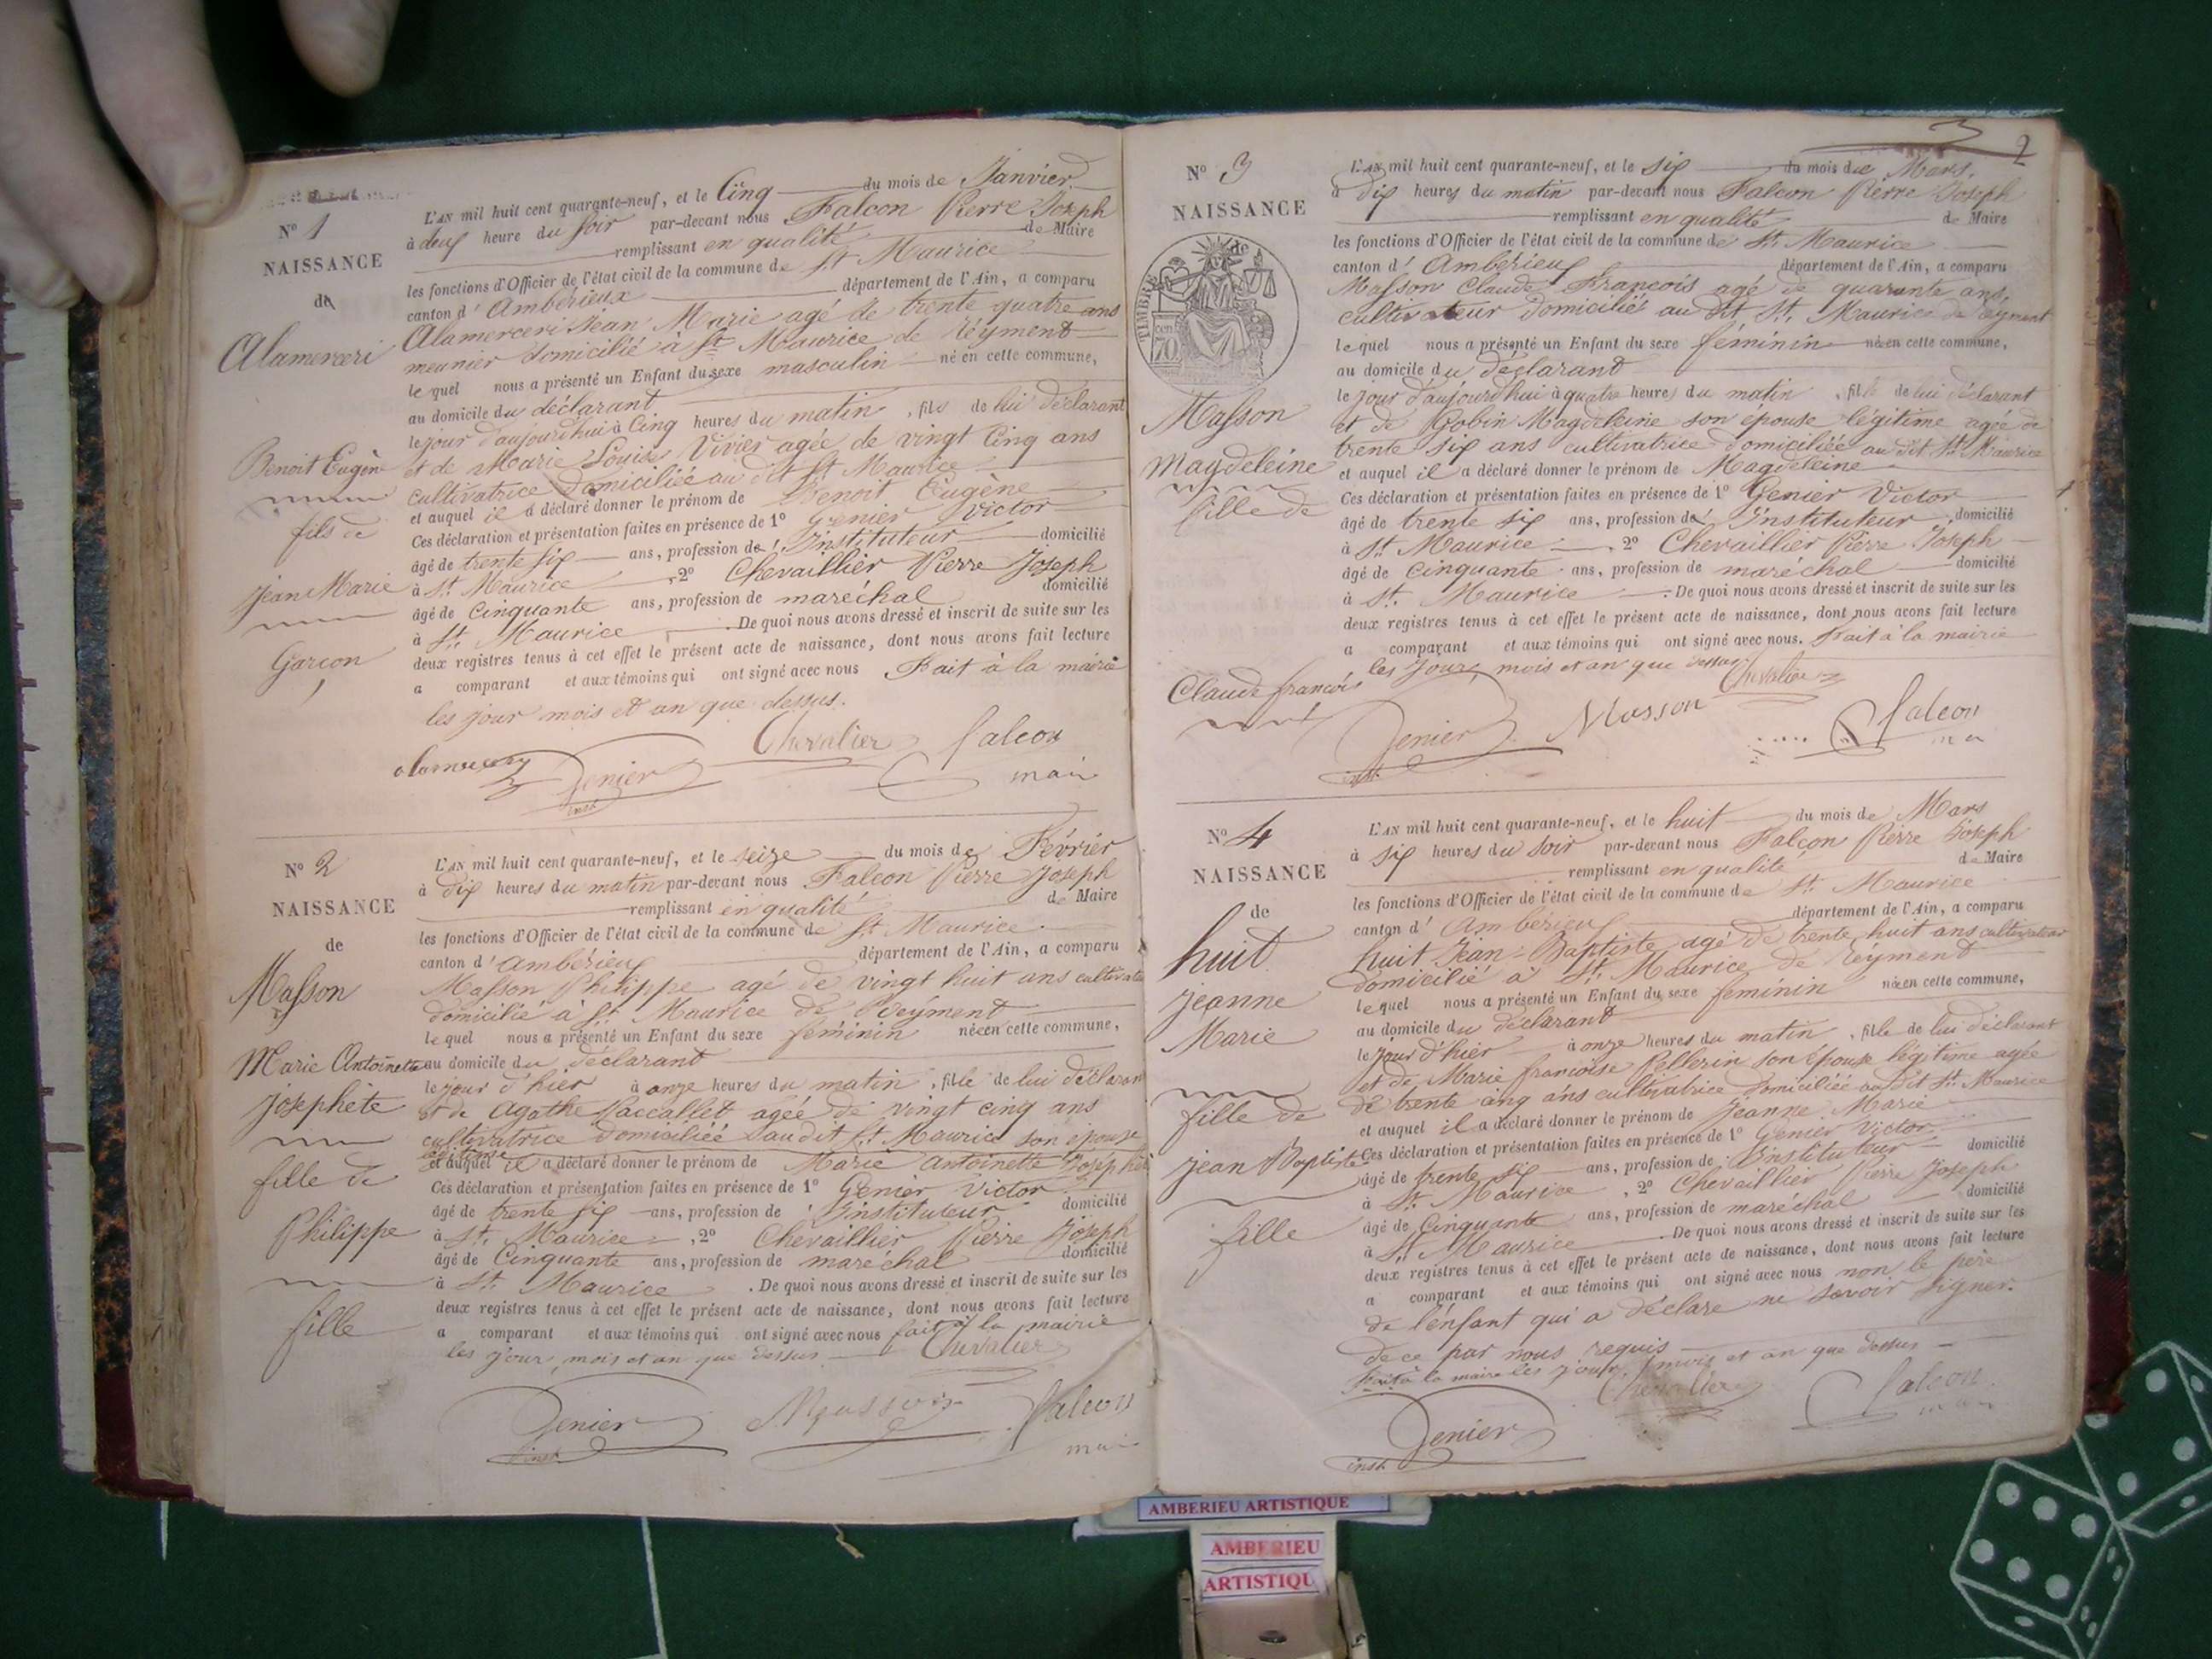 N° 1
NAISSANCE
de
Alamerceri
Benoit Eugène
fils de
Jean Marie
Garçon
L'AN mil huit cent quarante-neuf, et le Cinq du mois de Janvier
à deux heure du soir par-devant nous Falcon Pierre Joseph
remplissant en qualité de Maire
les fonctions d'Officier de l'état civil de la commune de St Maurice
canton d'Ambérieux département de l'Ain, a comparu
Alamerceri Jean Marie agé de trente quatre ans
meunier domicilié à St Maurice de Réyment
lequel nous a présenté un Enfant du sexe masculin né en cette commune,
au domicile du déclarant
le jour d'aujourdhui à Cinq heures du matin, fils de lui déclarant
et de Marie Louise Vivier agée de vingt Cinq ans
cultivatrice domiciliée au dit St Maurice
et auquel il a déclaré donner le prénom de Benoit Eugène
Ces déclaration et présentation faites en présence de 1° Genier Victor
âgé de trente six ans, profession d'Instituteur domicilié
à St Maurice, 2° Chevaillier Pierre Joseph
âgé de Cinquante ans, profession de maréchal domicilié
à St. Maurice. De quoi nous avons dressé et inscrit de suite sur les
deux registres tenus à cet effet le présent acte de naissance, dont nous avons fait lecture
a comparant et aux témoins qui ont signé avec nous Fait à la mairie
les jour mois et an que dessus.
Chevalier Falcon
Genier
inst
N° 2
NAISSANCE
de
Masson
Marie Antoinette
Josephète
fille de
Philippe
fille
L'AN mil huit cent quarante-neuf, et le seize du mois de Février
à dix heures du matin par-devant nous Falcon Pierre Joseph
remplissant en qualité de Maire
les fonctions d'Officier de l'état civil de la commune de St Maurice
canton d'Ambérieux département de l'Ain, a comparu
Masson Philippe agé de vingt huit ans
domicilié à St Maurice de Réyment
lequel nous a présenté un Enfant du sexe féminin née en cette commune,
au domicile du déclarant
le jour d'hier à onze heures du matin, fille de lui déclarant
et de Agathe agée de vingt cinq ans
cultivatrice domiciliée audit St Maurice son épouse
légitime
et auquel il a déclaré donner le prénom de Marie Antoinette
Ces déclaration et présentation faites en présence de 1° Genier Victor
âgé de trente six ans, profession de Instituteur domicilié
à St. Maurice, 2° Chevaillier Pierre Joseph
âgé de Cinquante ans, profession de maréchal domicilié
à St. Maurice. De quoi nous avons dressé et inscrit de suite sur les
deux registres tenus à cet effet le présent acte de naissance, dont nous avons fait lecture
a comparant et aux témoins qui ont signé avec nous fait à la mairie
les jour, mois et an que dessus
Chevalier
Genier Masson Falcon
inst
3
2
N° 3
NAISSANCE
de
TIMBRE
70
Masson
Magdeleine
fille de
Claude françois
L'AN mil huit cent quarante-neuf, et le six du mois de Mars,
à dix heures du matin par-devant nous Falcon Pierre Joseph
remplissant en qualité de Maire
les fonctions d'Officier de l'état civil de la commune de St. Maurice
canton d'Ambérieux département de l'Ain, a comparu
Masson Claude François agé de quarante ans,
cultivateur domicilié au dit St. Maurice de Réyment
lequel nous a présenté un Enfant du sexe féminin née en cette commune,
au domicile du déclarant
le jour d'aujourd'hui à quatre heures du matin, fille de lui déclarant
et de Gobin Magdeleine son épouse légitime agée de
trente six ans cultivatrice domiciliée au dit St. Maurice
et auquel il a déclaré donner le prénom de Magdeleine
Ces déclaration et présentation faites en présence de 1° Genier Victor
âgé de trente six ans, profession d'Instituteur domicilié
à St. Maurice, 2° Chevaillier Pierre Joseph
âgé de cinquante ans, profession de maréchal domicilié
à St. Maurice. De quoi nous avons dressé et inscrit de suite sur les
deux registres tenus à cet effet le présent acte de naissance, dont nous avons fait lecture
a comparant et aux témoins qui ont signé avec nous. Fait à la mairie
les jour, mois et an que dessus
Chevalier
Genier Masson Falcon
inst.
N° 4
NAISSANCE
de
huit
Jeanne
Marie
fille de
Jean Baptiste
fille
L'AN mil huit cent quarante-neuf, et le huit du mois de Mars
à six heures du soir par-devant nous Falcon Pierre Joseph
remplissant en qualité de Maire
les fonctions d'Officier de l'état civil de la commune de St. Maurice
canton d'Ambérieux département de l'Ain, a comparu
huit Jean-Baptiste agé de trente huit ans cultivateur
domicilié à St. Maurice de Réyment
lequel nous a présenté un Enfant du sexe féminin née en cette commune,
au domicile du déclarant
le jour d'hier à onze heures du matin, fille de lui déclarant
et de Marie françoise Pellerin son épouse légitime agée
de trente cinq ans cultivatrice domiciliée au dit St. Maurice
et auquel il a déclaré donner le prénom de Jeanne Marie
Ces déclaration et présentation faites en présence de 1° Genier Victor
âgé de trente six ans, profession de Instituteur domicilié
à St. Maurice, 2° Chevaillier Pierre Joseph
âgé de Cinquante ans, profession de maréchal domicilié
à St. Maurice. De quoi nous avons dressé et inscrit de suite sur les
deux registres tenus à cet effet le présent acte de naissance, dont nous avons fait lecture
a comparant et aux témoins qui ont signé avec nous non le père
de l'enfant qui a déclaré ne savoir signer.
de ce par nous requis
Fait à la maire les jour, mois et an que dessus
Chevalier Falcon
Genier
inst
AMBERIEU ARTISTIQUE
AMBERIEU
ARTISTIQU